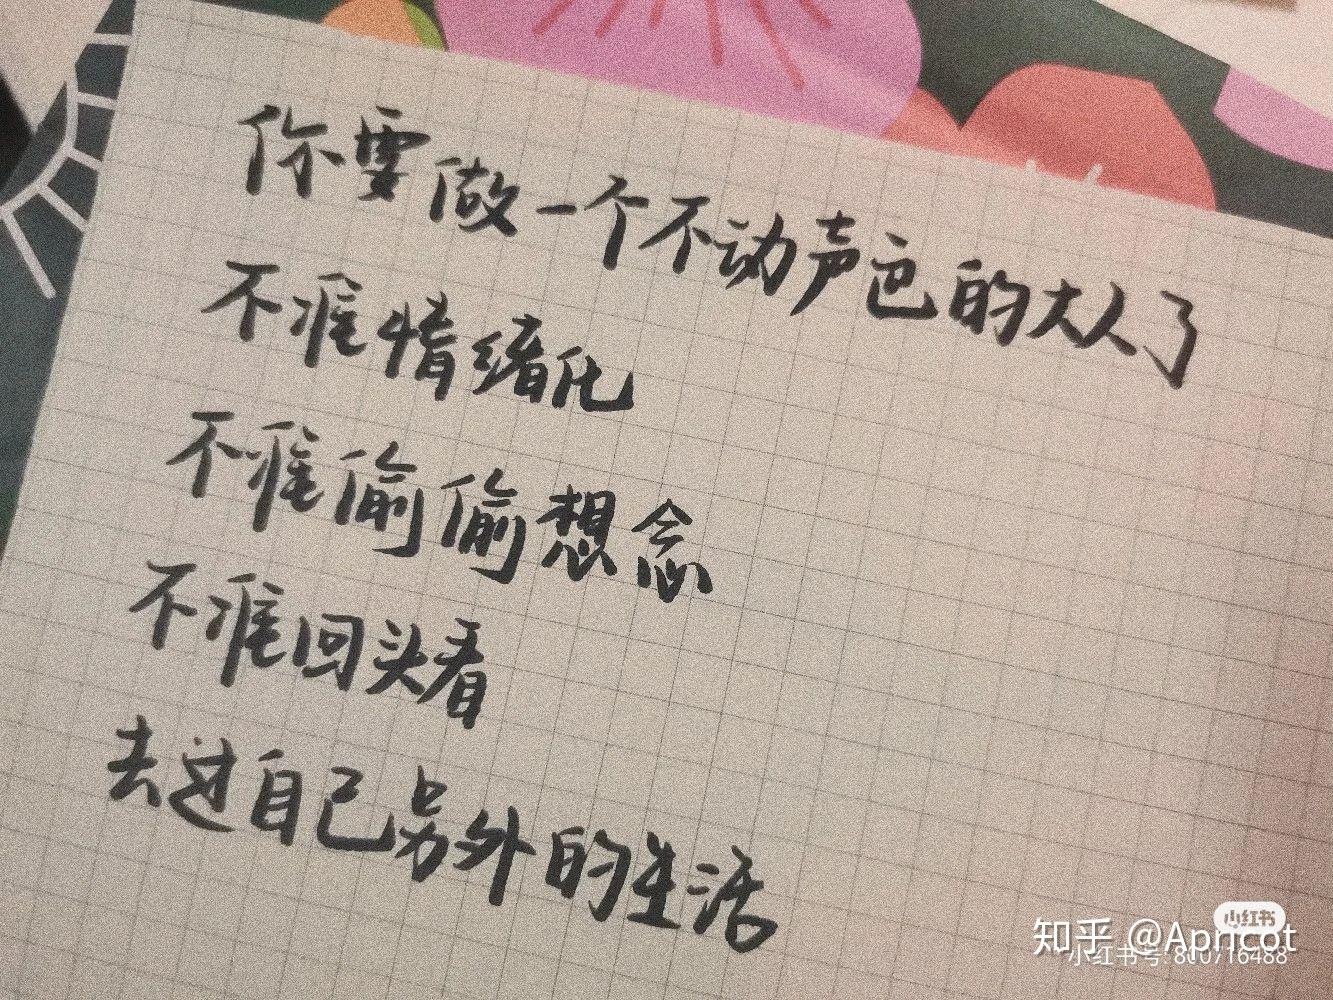 你要做一个不动声色的大人了
不准情绪化
不准偷偷想念
不准回头看
去过自己另外的生活
小红书
知乎 @Apricot
小红书号: 800716488